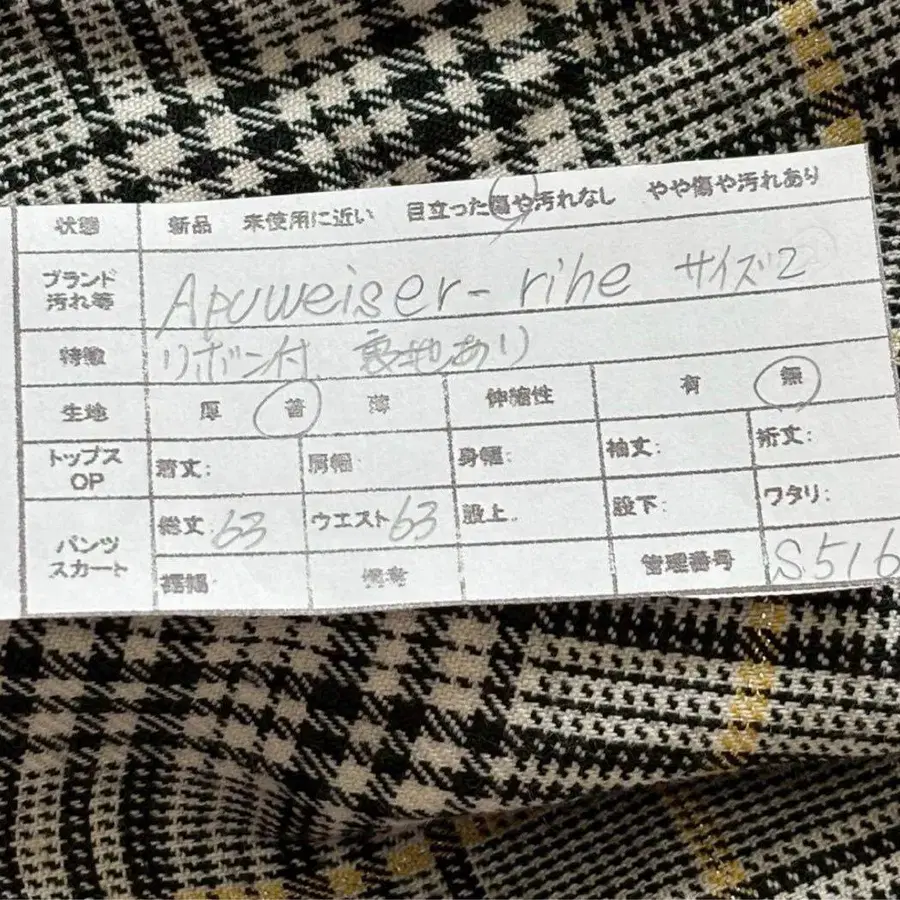 状態 新品 未使用に近い 目立った傷や汚れなし やや傷や汚れあり
ブランド 汚れ等 Apuweiser-rihe サイズ2
特徴 リボン付、裏地あり
生地 厚 普 薄 伸縮性 有 無
トップス OP 着丈: 肩幅: 身幅: 袖丈: 裄丈:
パンツ スカート 総丈 63 ウエスト 63 股上: 股下: ワタリ:
裾幅 備考 管理番号 S516